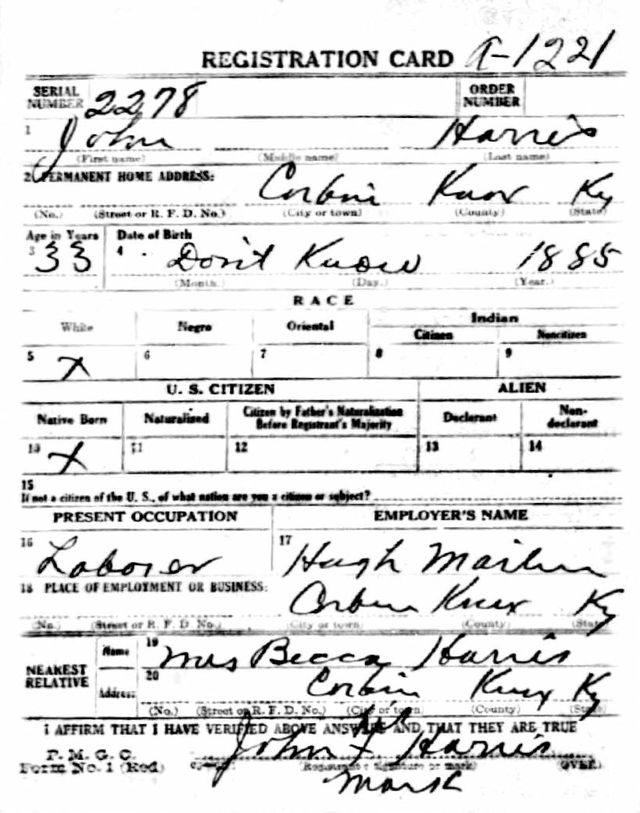 REGISTRATION CARD A-1221
SERIAL NUMBER 2278 ORDER NUMBER
1 John Harris
(First name) (Middle name) (Last name)
2 PERMANENT HOME ADDRESS: Corbin Knox Ky
(No.) (Street or R. F. D. No.) (City or town) (County) (State)
Age in Years Date of Birth
3 33 4 Don't Know 1885
(Month.) (Day.) (Year.)
RACE
White Negro Oriental Indian
Citizen Noncitizen
5 X 6 7 8 9
U. S. CITIZEN ALIEN
Native Born Naturalized Citizen by Father's Naturalization Before Registrant's Majority Declarant Non-declarant
10 X 11 12 13 14
15
If not a citizen of the U. S., of what nation are you a citizen or subject?
PRESENT OCCUPATION EMPLOYER'S NAME
16 Laborer 17 Hugh
18 PLACE OF EMPLOYMENT OR BUSINESS:
Corbin Knox Ky
(No.) (Street or R. F. D. No.) (City or town) (County) (State)
NEAREST RELATIVE Name 19 Mrs Becca Harris
Address 20 Corbin Knox Ky
(No.) (Street or R. F. D. No.) (City or town) (County) (State)
I AFFIRM THAT I HAVE VERIFIED ABOVE ANSWERS AND THAT THEY ARE TRUE
His
P. M. G. O.
Form No. 1 (Red) John X Harris
(Registrant's signature or mark) (OVER)
Mark